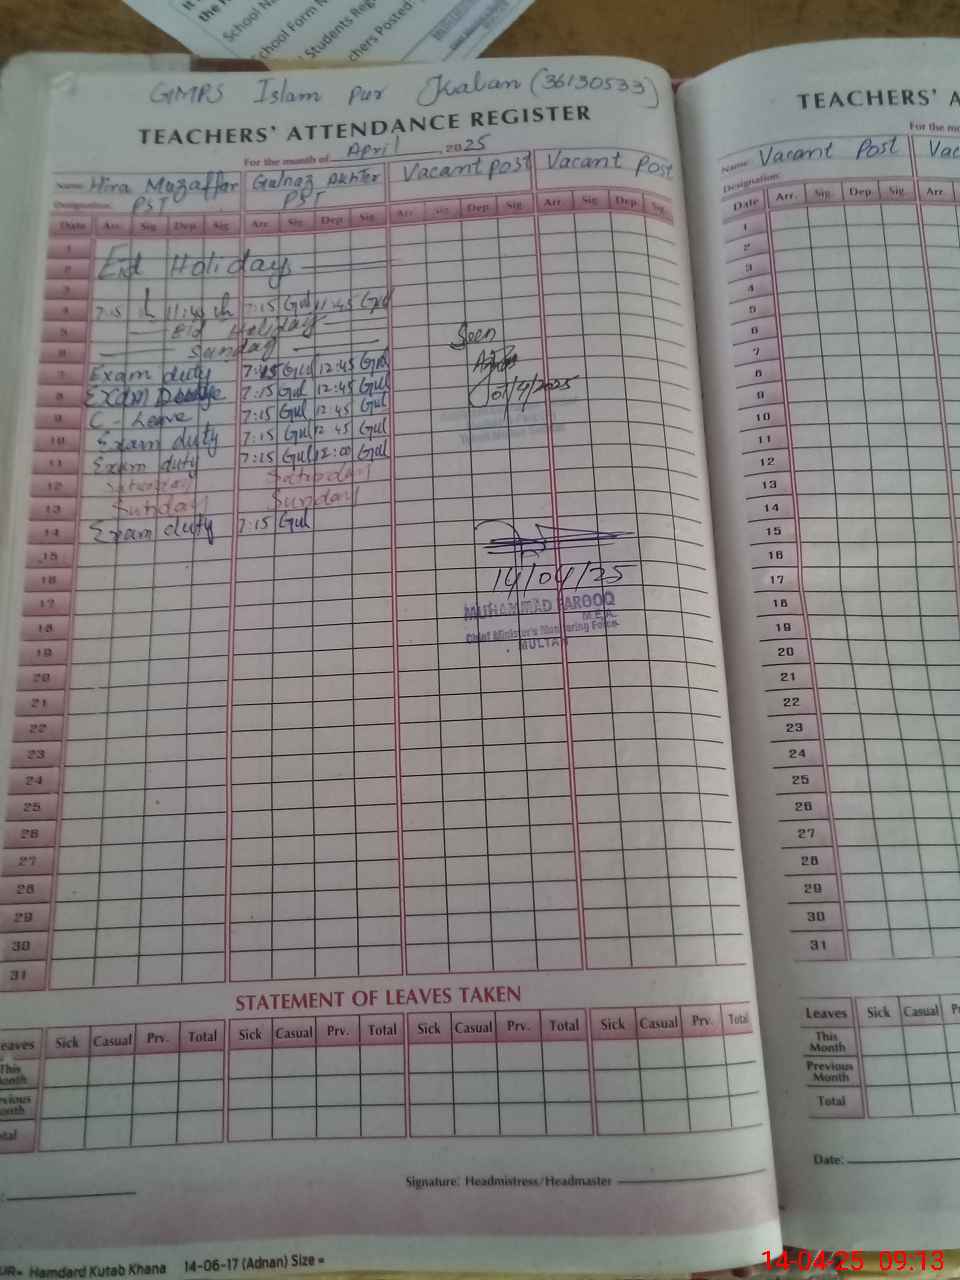 School Form N
Students Reg
chers Posted:
GMPS Islam pur Kalan (36130533)
TEACHERS' ATTENDANCE REGISTER
For the month of April, 2025
Name: Hira Muzaffar Gulnaz Akhter Vacant Post Vacant Post
PST PST
Date Arr. Sig. Dep. Sig. Arr. Sig. Dep. Sig. Arr. Sig. Dep. Sig. Arr. Sig. Dep. Sig.
1
2 Eid Holidays
3
4 7:15 11:45 7:15 Gul 11:45 Gul
5 Eid Holiday
6 Sunday
7 Exam duty 7:15 Gul 12:45 Gul
8 Exam 7:15 Gul 12:45 Gul
9 C-Leave 7:15 Gul 12:45 Gul
10 Exam duty 7:15 Gul 12:45 Gul
11 Exam duty 7:15 Gul 12:00 Gul
12 Saturday Saturday
13 Sunday Sunday
14 Exam duty 7:15 Gul
15
16
17
18
19
20
21
22
23
24
25
26
27
28
29
30
31
Seen
07/4/2025
14/04/25
MUHAMMAD FAROOQ
M.E.A.
Chief Minister's Monitoring Force
MULTAN
STATEMENT OF LEAVES TAKEN
eaves Sick Casual Prv. Total Sick Casual Prv. Total Sick Casual Prv. Total Sick Casual Prv. Total
This
onth
evious
onth
otal
Signature: Headmistress/Headmaster
Hamdard Kutab Khana 14-06-17 (Adnan) Size =
TEACHERS' A
For the mo
Name: Vacant Post Vac
Designation:
Date Arr. Sig. Dep. Sig. Arr.
1
2
3
4
5
6
7
8
9
10
11
12
13
14
15
16
17
18
19
20
21
22
23
24
25
26
27
28
29
30
31
Leaves Sick Casual Pr
This
Month
Previous
Month
Total
Date:
14-04-25 09:13